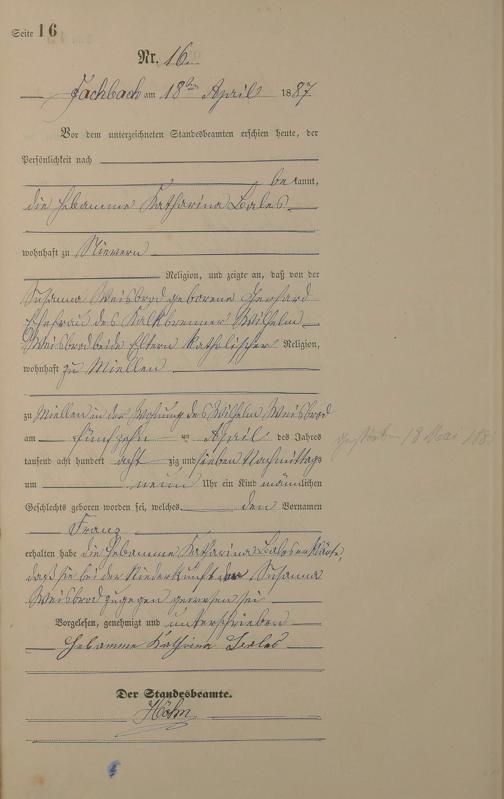 Seite 16
Nr. 16.
Fachbach am 18ten April 1887
Vor dem unterzeichneten Standesbeamten erschien heute, der
Persönlichkeit nach
be kannt,
die Hebamme Katharina Bales
wohnhaft zu Nievern
Religion, und zeigte an, daß von der
Susanna Weisbrod geborene Gerhard
Ehefrau des Kalkbrenner Wilhelm
Weisbrod beide Eltern katholischer Religion,
wohnhaft zu Miellen
zu Miellen in der Wohnung des Wilhelm Weisbrod
am fünfzehn ten April des Jahres
tausend acht hundert acht zig und sieben Nachmittags
um neun Uhr ein Kind männlichen
Geschlechts geboren worden sei, welches den Vornamen
Franz
erhalten habe die Hebamme Katharina Bales erklärte,
daß sie bei der Niederkunft der Susanna
Weisbrod zugegen gewesen sei
Vorgelesen, genehmigt und unterschrieben
Hebamme Kathrina Bales
Der Standesbeamte.
Höhn
gestorben 18 Mai